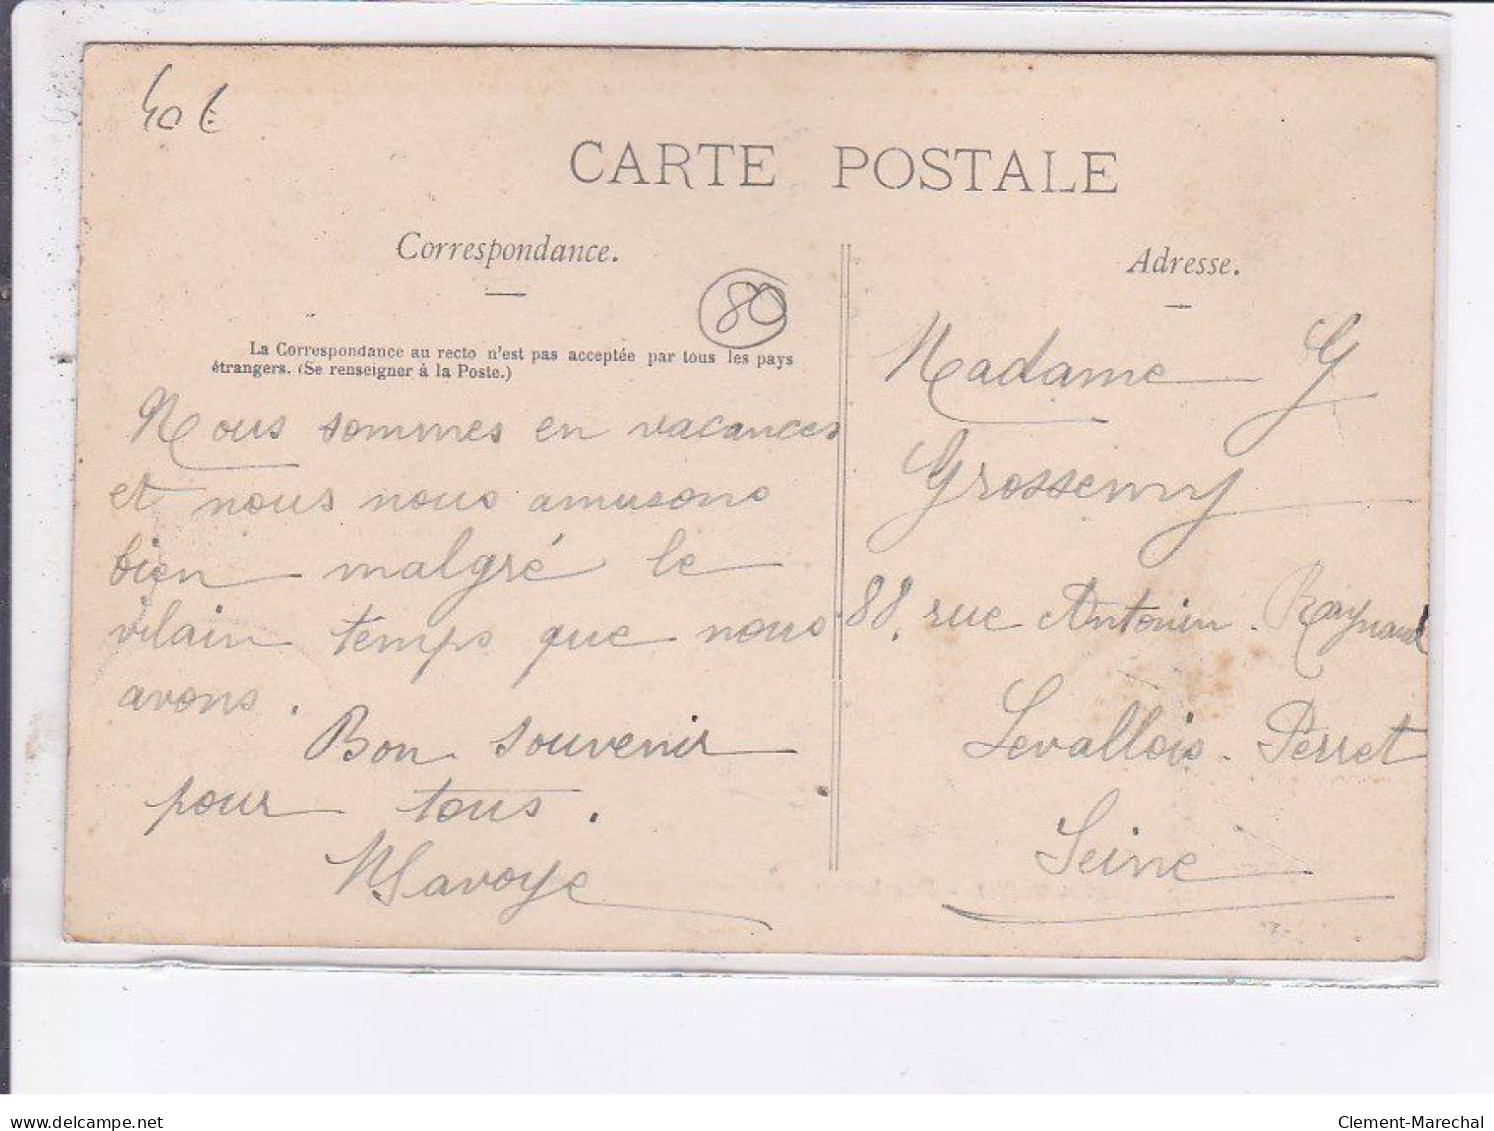 40€
CARTE POSTALE
Correspondance.
Adresse.
80
La Correspondance au recto n'est pas acceptée par tous les pays
étrangers. (Se renseigner à la Poste.)
Nous sommes en vacances
et nous nous amusons
bien malgré le
vilain temps que nous
avons.
Bon souvenir
pour tous.
MSavoye
Madame G
88, rue Antonin Raynaud
Levallois-Perret
Seine
delcampe.net
Clement-Marechal